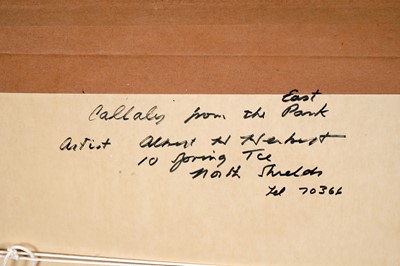 Callaly from the East Park
Artist Albert H Herbert
10 Spring Tce
North Shields
Tel 70366